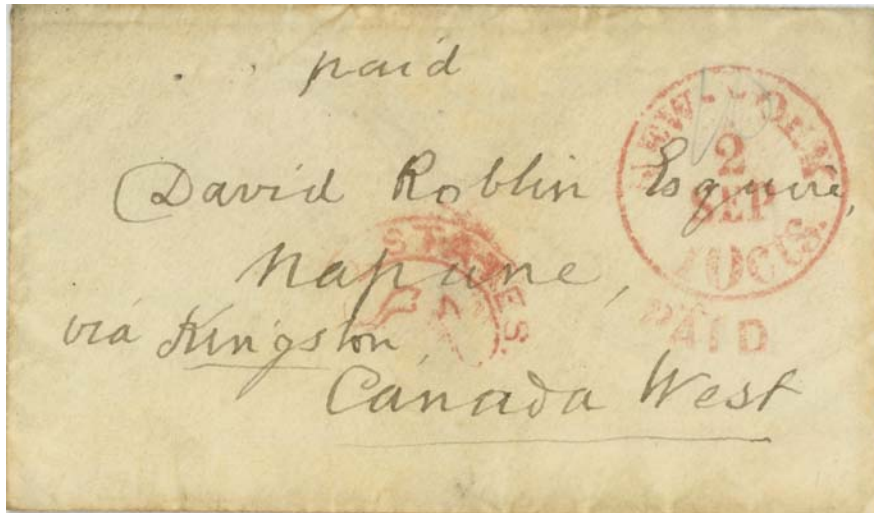 paid
David Roblin Esquire,
Napune,
via Kingston,
Canada West
NEW-YORK
2
SEP
10cts.
PAID
STATES.